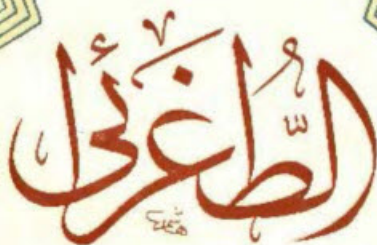 الطُّغرائي